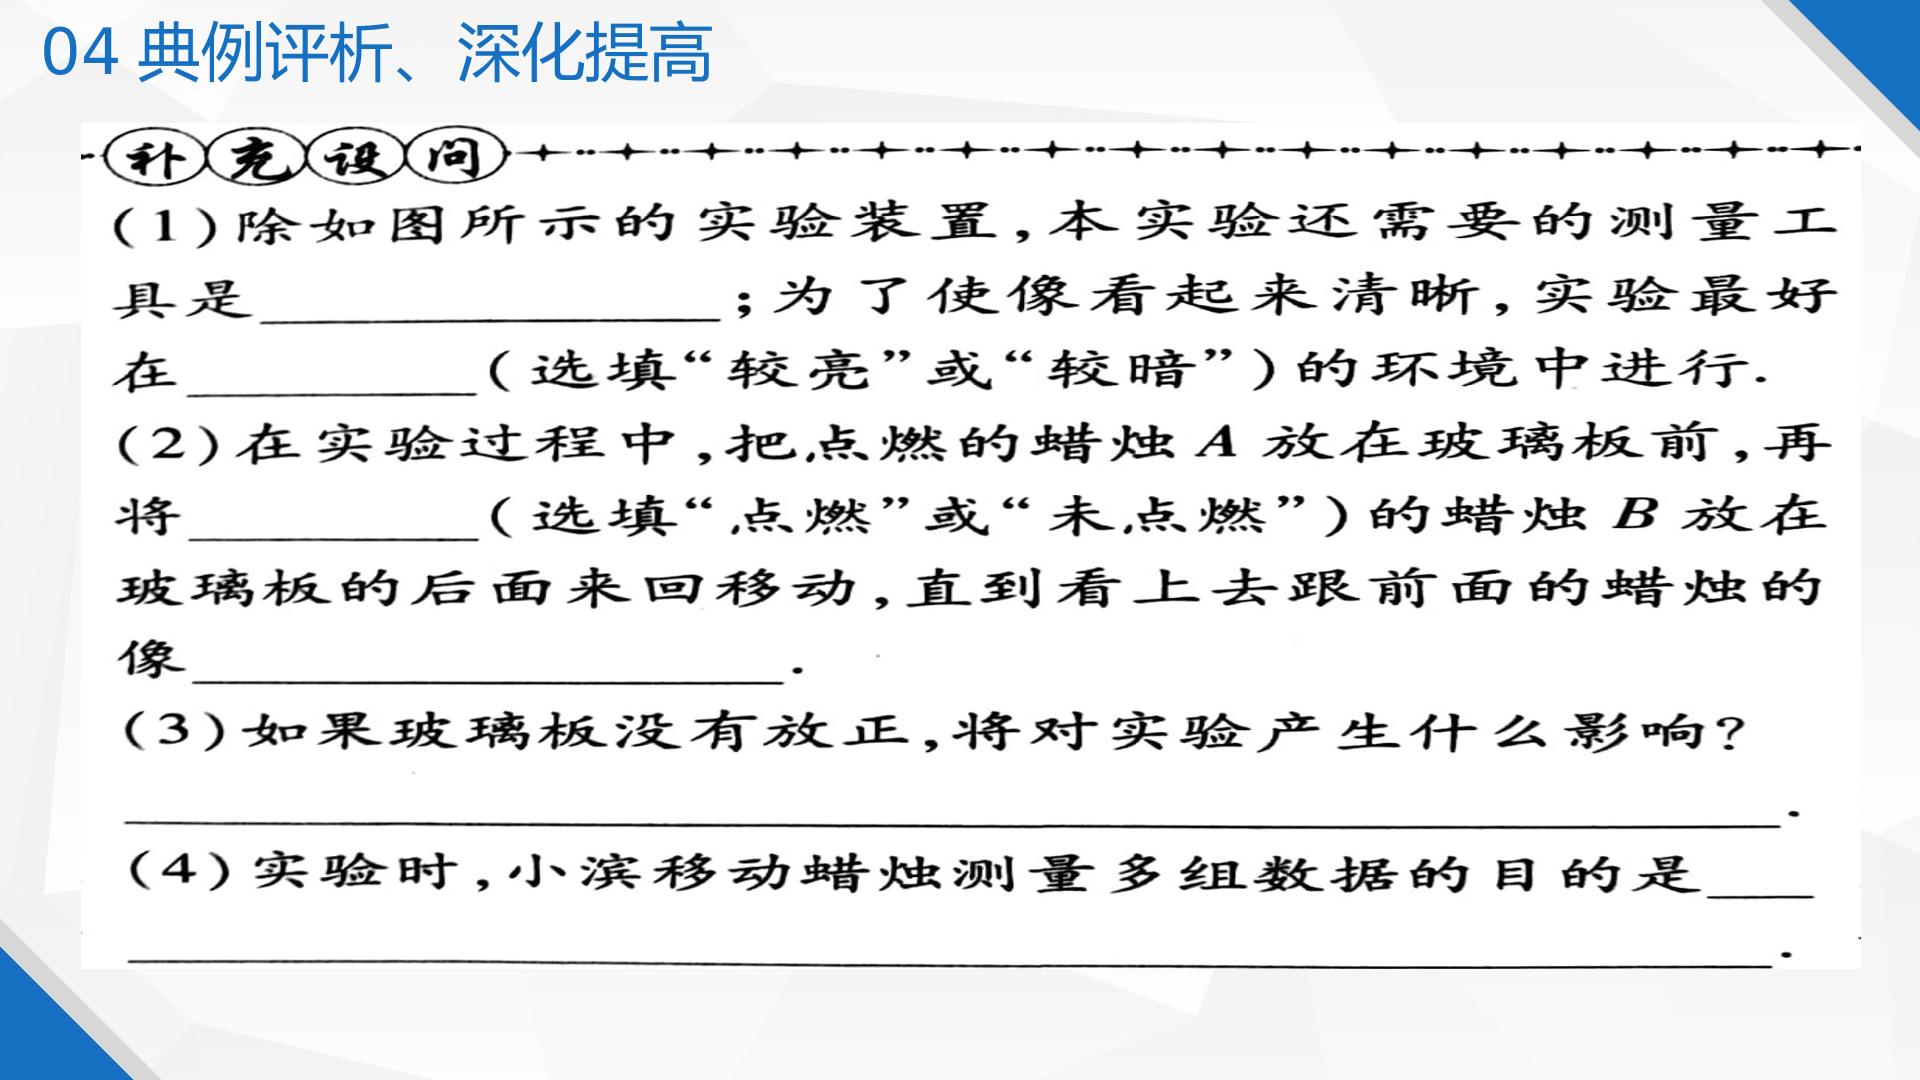 04 典例评析、深化提高
补充设问
(1)除如图所示的实验装置,本实验还需要的测量工
具是________________;为了使像看起来清晰,实验最好
在__________(选填“较亮”或“较暗”)的环境中进行.
(2)在实验过程中,把点燃的蜡烛 A 放在玻璃板前,再
将__________(选填“点燃”或“未点燃”)的蜡烛 B 放在
玻璃板的后面来回移动,直到看上去跟前面的蜡烛的
像____________________.
(3)如果玻璃板没有放正,将对实验产生什么影响?
________________________________________________________.
(4)实验时,小滨移动蜡烛测量多组数据的目的是____
________________________________________________________.